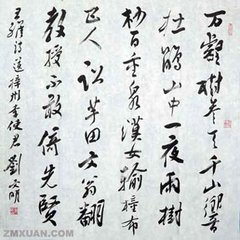 万壑樹参天千山響
杜鵑山中一夜雨樹
杪百重泉漢女輸橦布
巴人訟芋田文翁翻
教授不敢倚先賢
王維詩送梓州李使君 劉明
ZMXUAN.COM